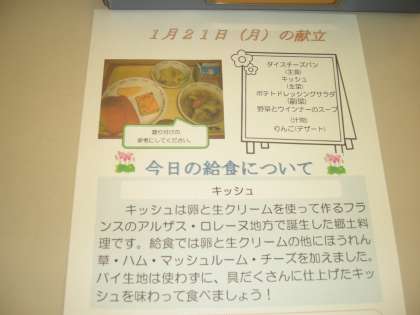 1月21日(月)の献立
ダイスチーズパン
(主食)
キッシュ
(主菜)
ポテトドレッシングサラダ
(副菜)
野菜とウインナーのスープ
(汁物)
りんご(デザート)
盛り付けの
参考にしてください。
今日の給食について
キッシュ
キッシュは卵と生クリームを使って作るフラ
ンスのアルザス・ロレーヌ地方で誕生した郷土料
理です。給食では卵と生クリームの他にほうれん
草・ハム・マッシュルーム・チーズを加えました。
パイ生地は使わずに、具だくさんに仕上げたキッ
シュを味わって食べましょう!